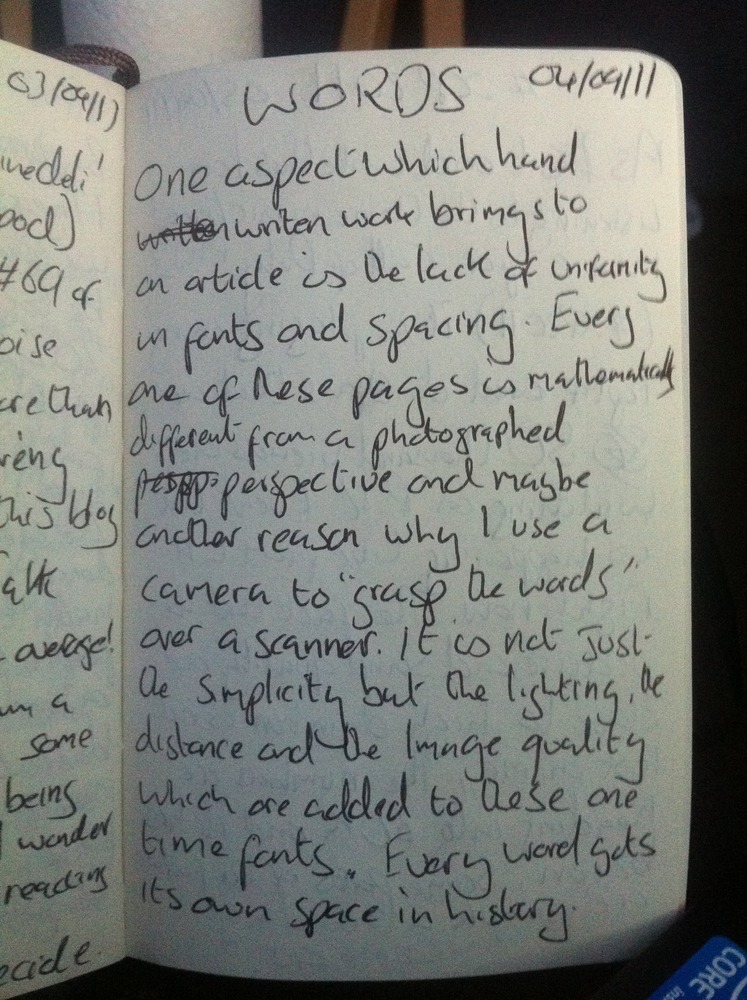 03/09/11
ood)
#69 of
oise
are than
this blog
average!
um a
some
being
I wonder
reading
ecide.
WORDS 04/09/11
One aspect which hand
written writen work brings to
an article is the lack of uniformity
in fonts and spacing. Every
one of these pages is mathematically
different from a photographed
perspective and maybe
another reason why I use a
camera to "grasp the words"
over a scanner. It is not just
the simplicity but the lighting, the
distance and the image quality
which are added to these one
time fonts. Every word gets
its own space in history.
CORE